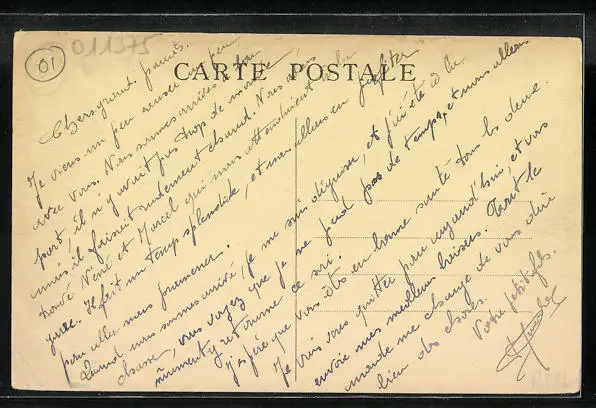 011375
01
CARTE POSTALE
Chers grands parents.
Je viens un peu causer un peu
avec vous. Nous sommes arrivés à bon
port, il n'y avait pas trop de monde
mais il faisait rudement chaud. Nous avons
trouvé René et Marcel qui nous attendaient à la
gare. Il fait un temps splendide, et nous allons en profiter
pour aller nous promener.
Quand nous sommes arrivé, je me suis déguiser, et j'ai été à la
chasse, vous voyez que je ne perd pas de temps, et nous allons
y retourne ce soir.
J'espère que vous êts en bonne santé tous les deux.
Je vais vous quitter pour aujourd'hui, et vous
envoie mes meilleurs baisers. Tout le
monde me charge de vous dire
bien des choses.
Votre petit fils.